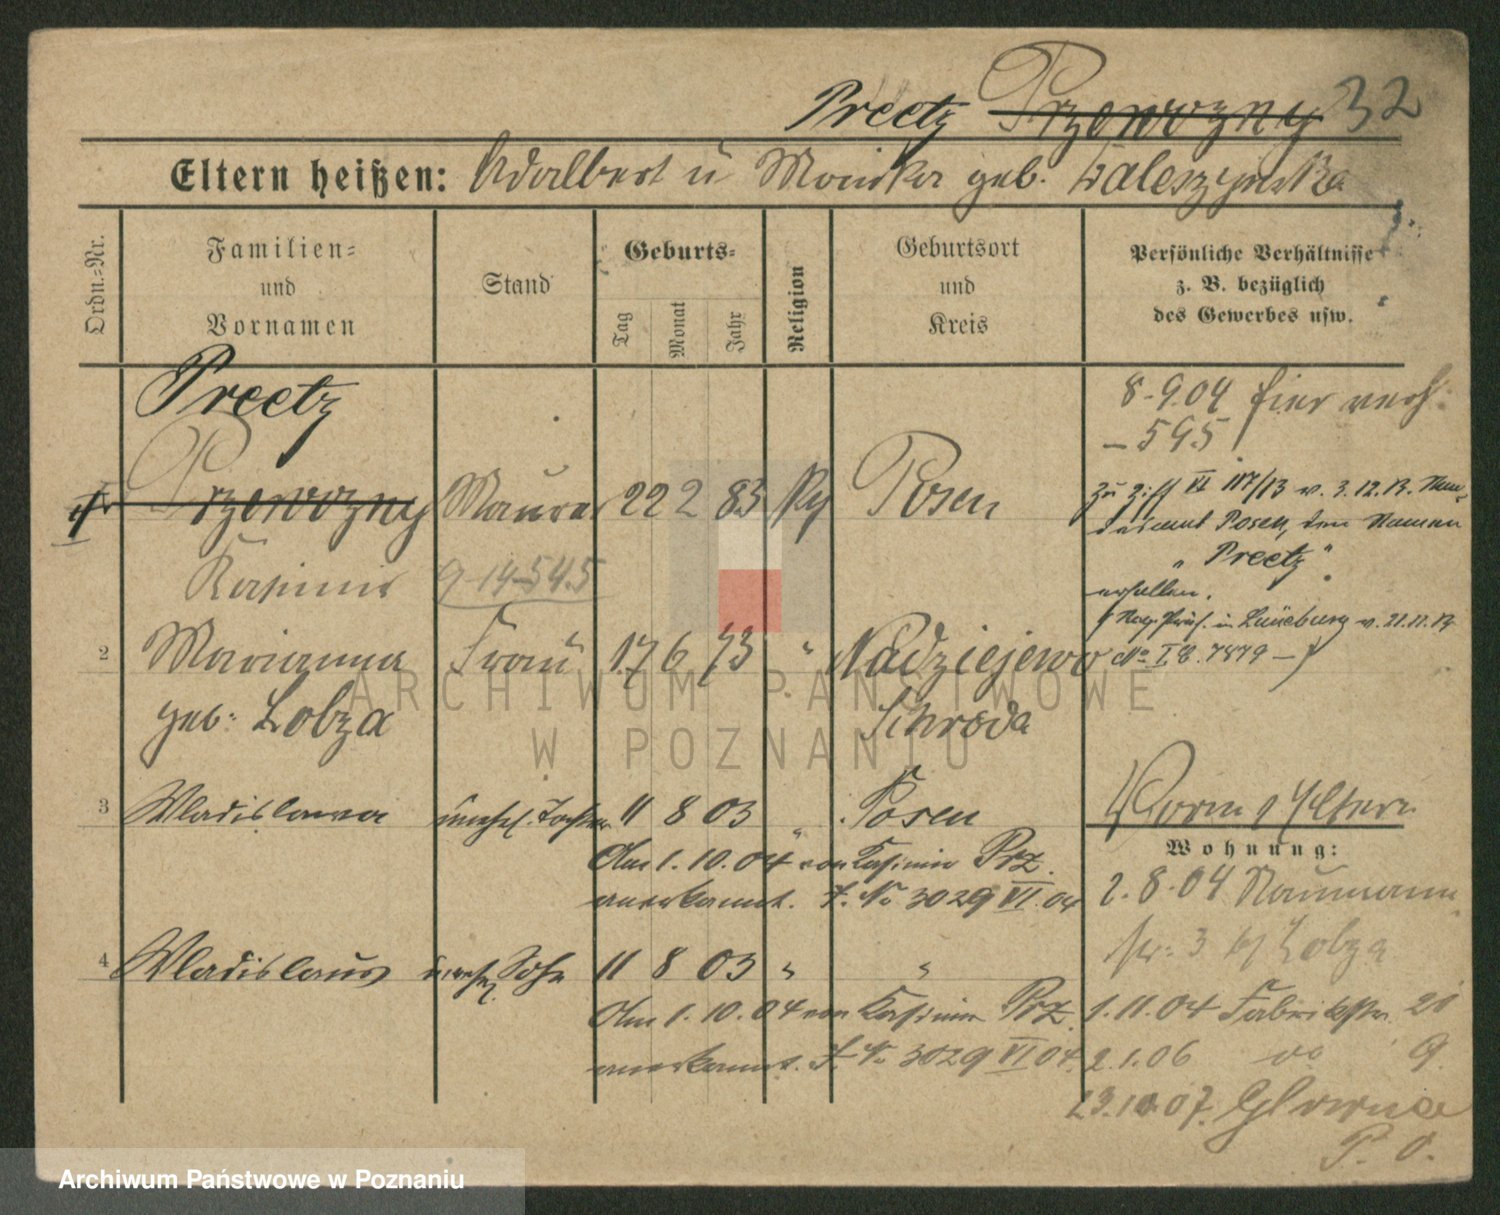 Preetz Przewozny 32
Eltern heißen: Adalbert u Monika geb.
Ordn.=Nr.
Familien=
und
Vornamen
Stand
Geburts=
Tag
Monat
Jahr
Religion
Geburtsort
und
Kreis
Persönliche Verhältnisse
z. B. bezüglich
des Gewerbes usw.
Preetz
8.9.04 hier verh.
595
Przewozny Maurer 22 2 83 Posen
Zu Ziff VI 117/13 v. 3.12.13.
Posen, den Namen
"Preetz"
Kasimir 9-14-545
erhalten.
in Lüneburg v. 21.11.13
2 Marianna Frau 17 6 73 " Nadziejewo
No I.E. 7879
geb. Lobza Schroda
3 Wladislawa unehel. Tochter 11 8 03 " Posen
Eltern
Wohnung:
Am 1.10.04 von Kasimir Prz.
anerkannt. J. No 3029 VI. 04
2.8.04 Naumann
str. 3 b/ Lobza
4 Wladislaus unehel Sohn 11 8 03 " "
Am 1.10.04 von Kasimir Prz.
1.11.04 Fabrikstr. 20
anerkannt. J. No 3029 VI 04.
2.1.06 do 9.
23.10.07. Glowna
P. O.
ARCHIWUM PAŃSTWOWE
W POZNANIU
Archiwum Państwowe w Poznaniu